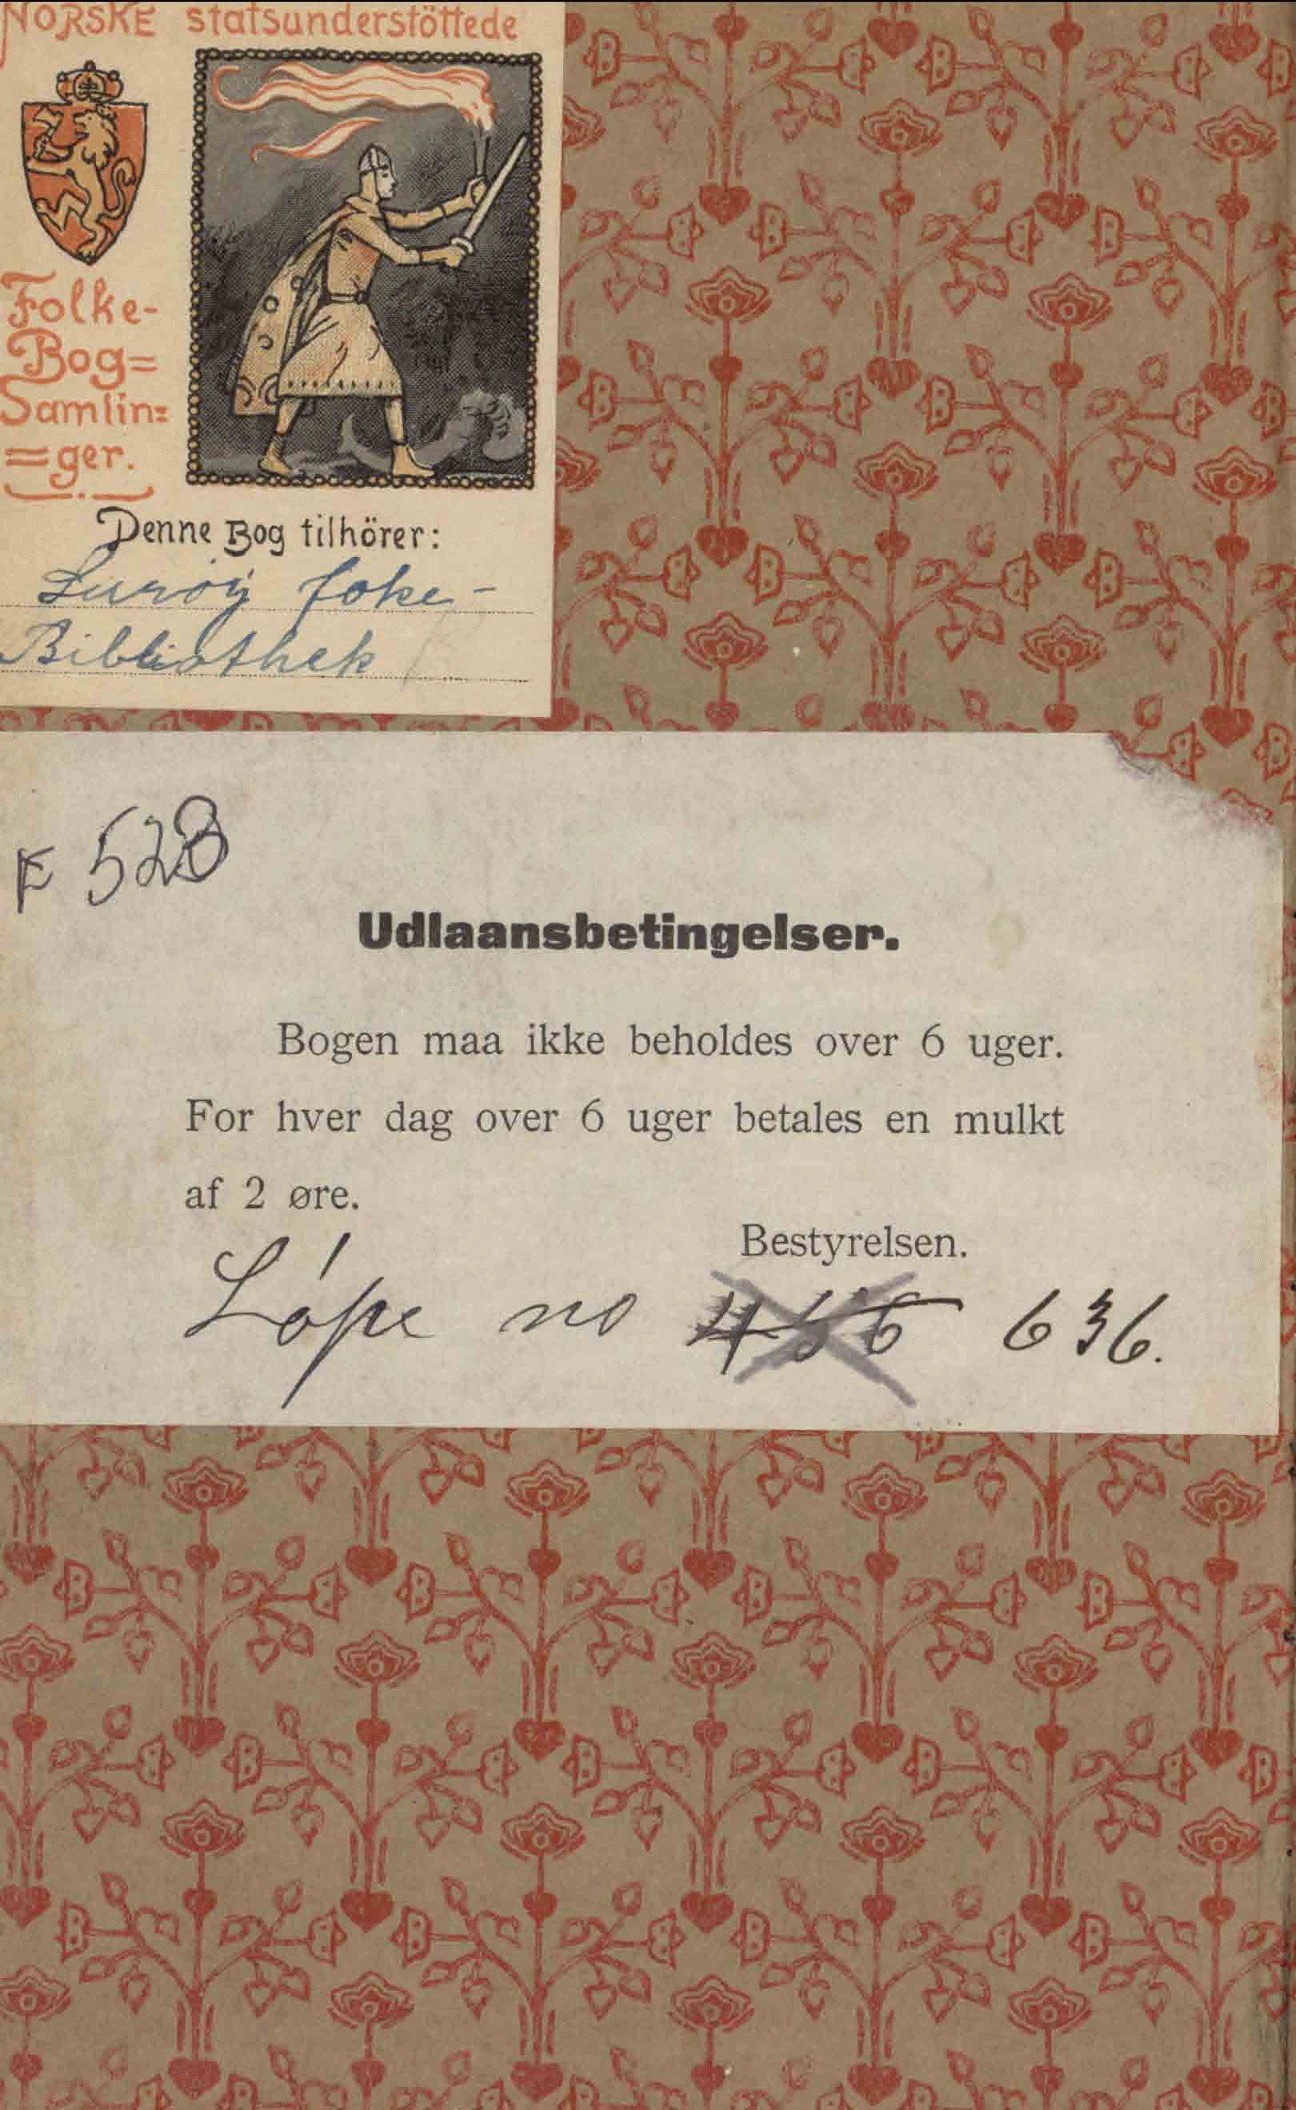 NORSKE statsunderstöttede
Folke-
Bog=
Samlin=
=ger.
Denne Bog tilhörer:
Lurøy foke-
Bibliothek
F 528
Udlaansbetingelser.
Bogen maa ikke beholdes over 6 uger.
For hver dag over 6 uger betales en mulkt
af 2 øre.
Bestyrelsen.
Løpe no 456 636.